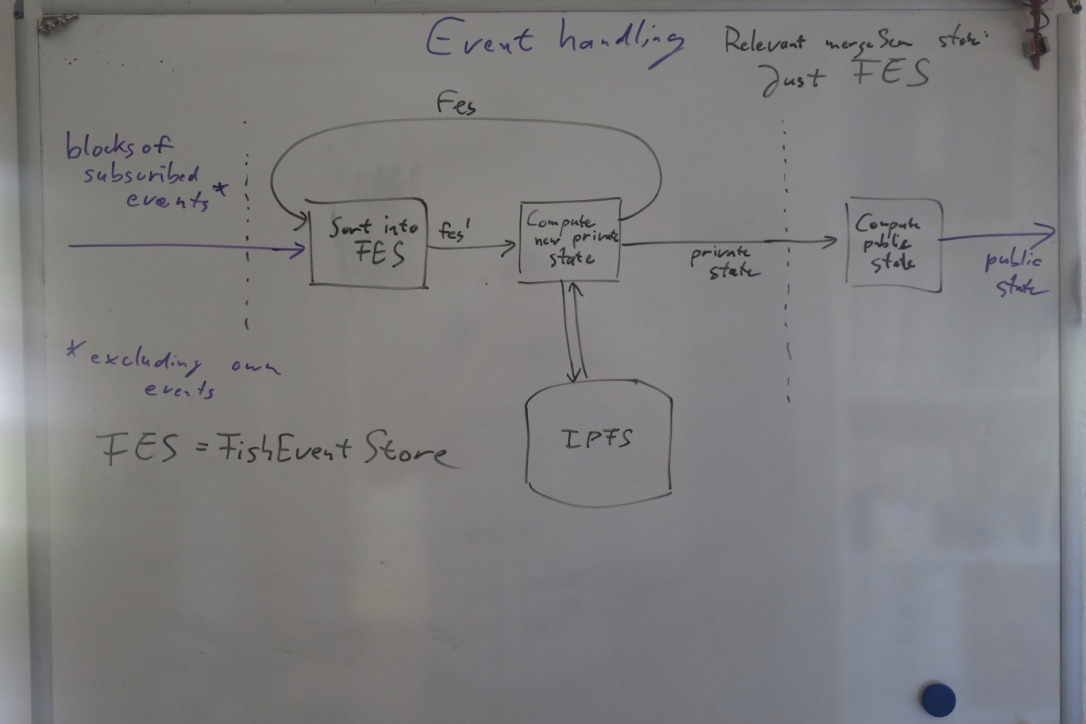 Event handling
Relevant mergeScan state:
Just FES
Fes
blocks of
subscribed
events*
Sort into
FES
fes'
Compute
new private
state
private
state
Compute
public
state
public
state
* excluding own
events
FES = FishEvent Store
IPFS